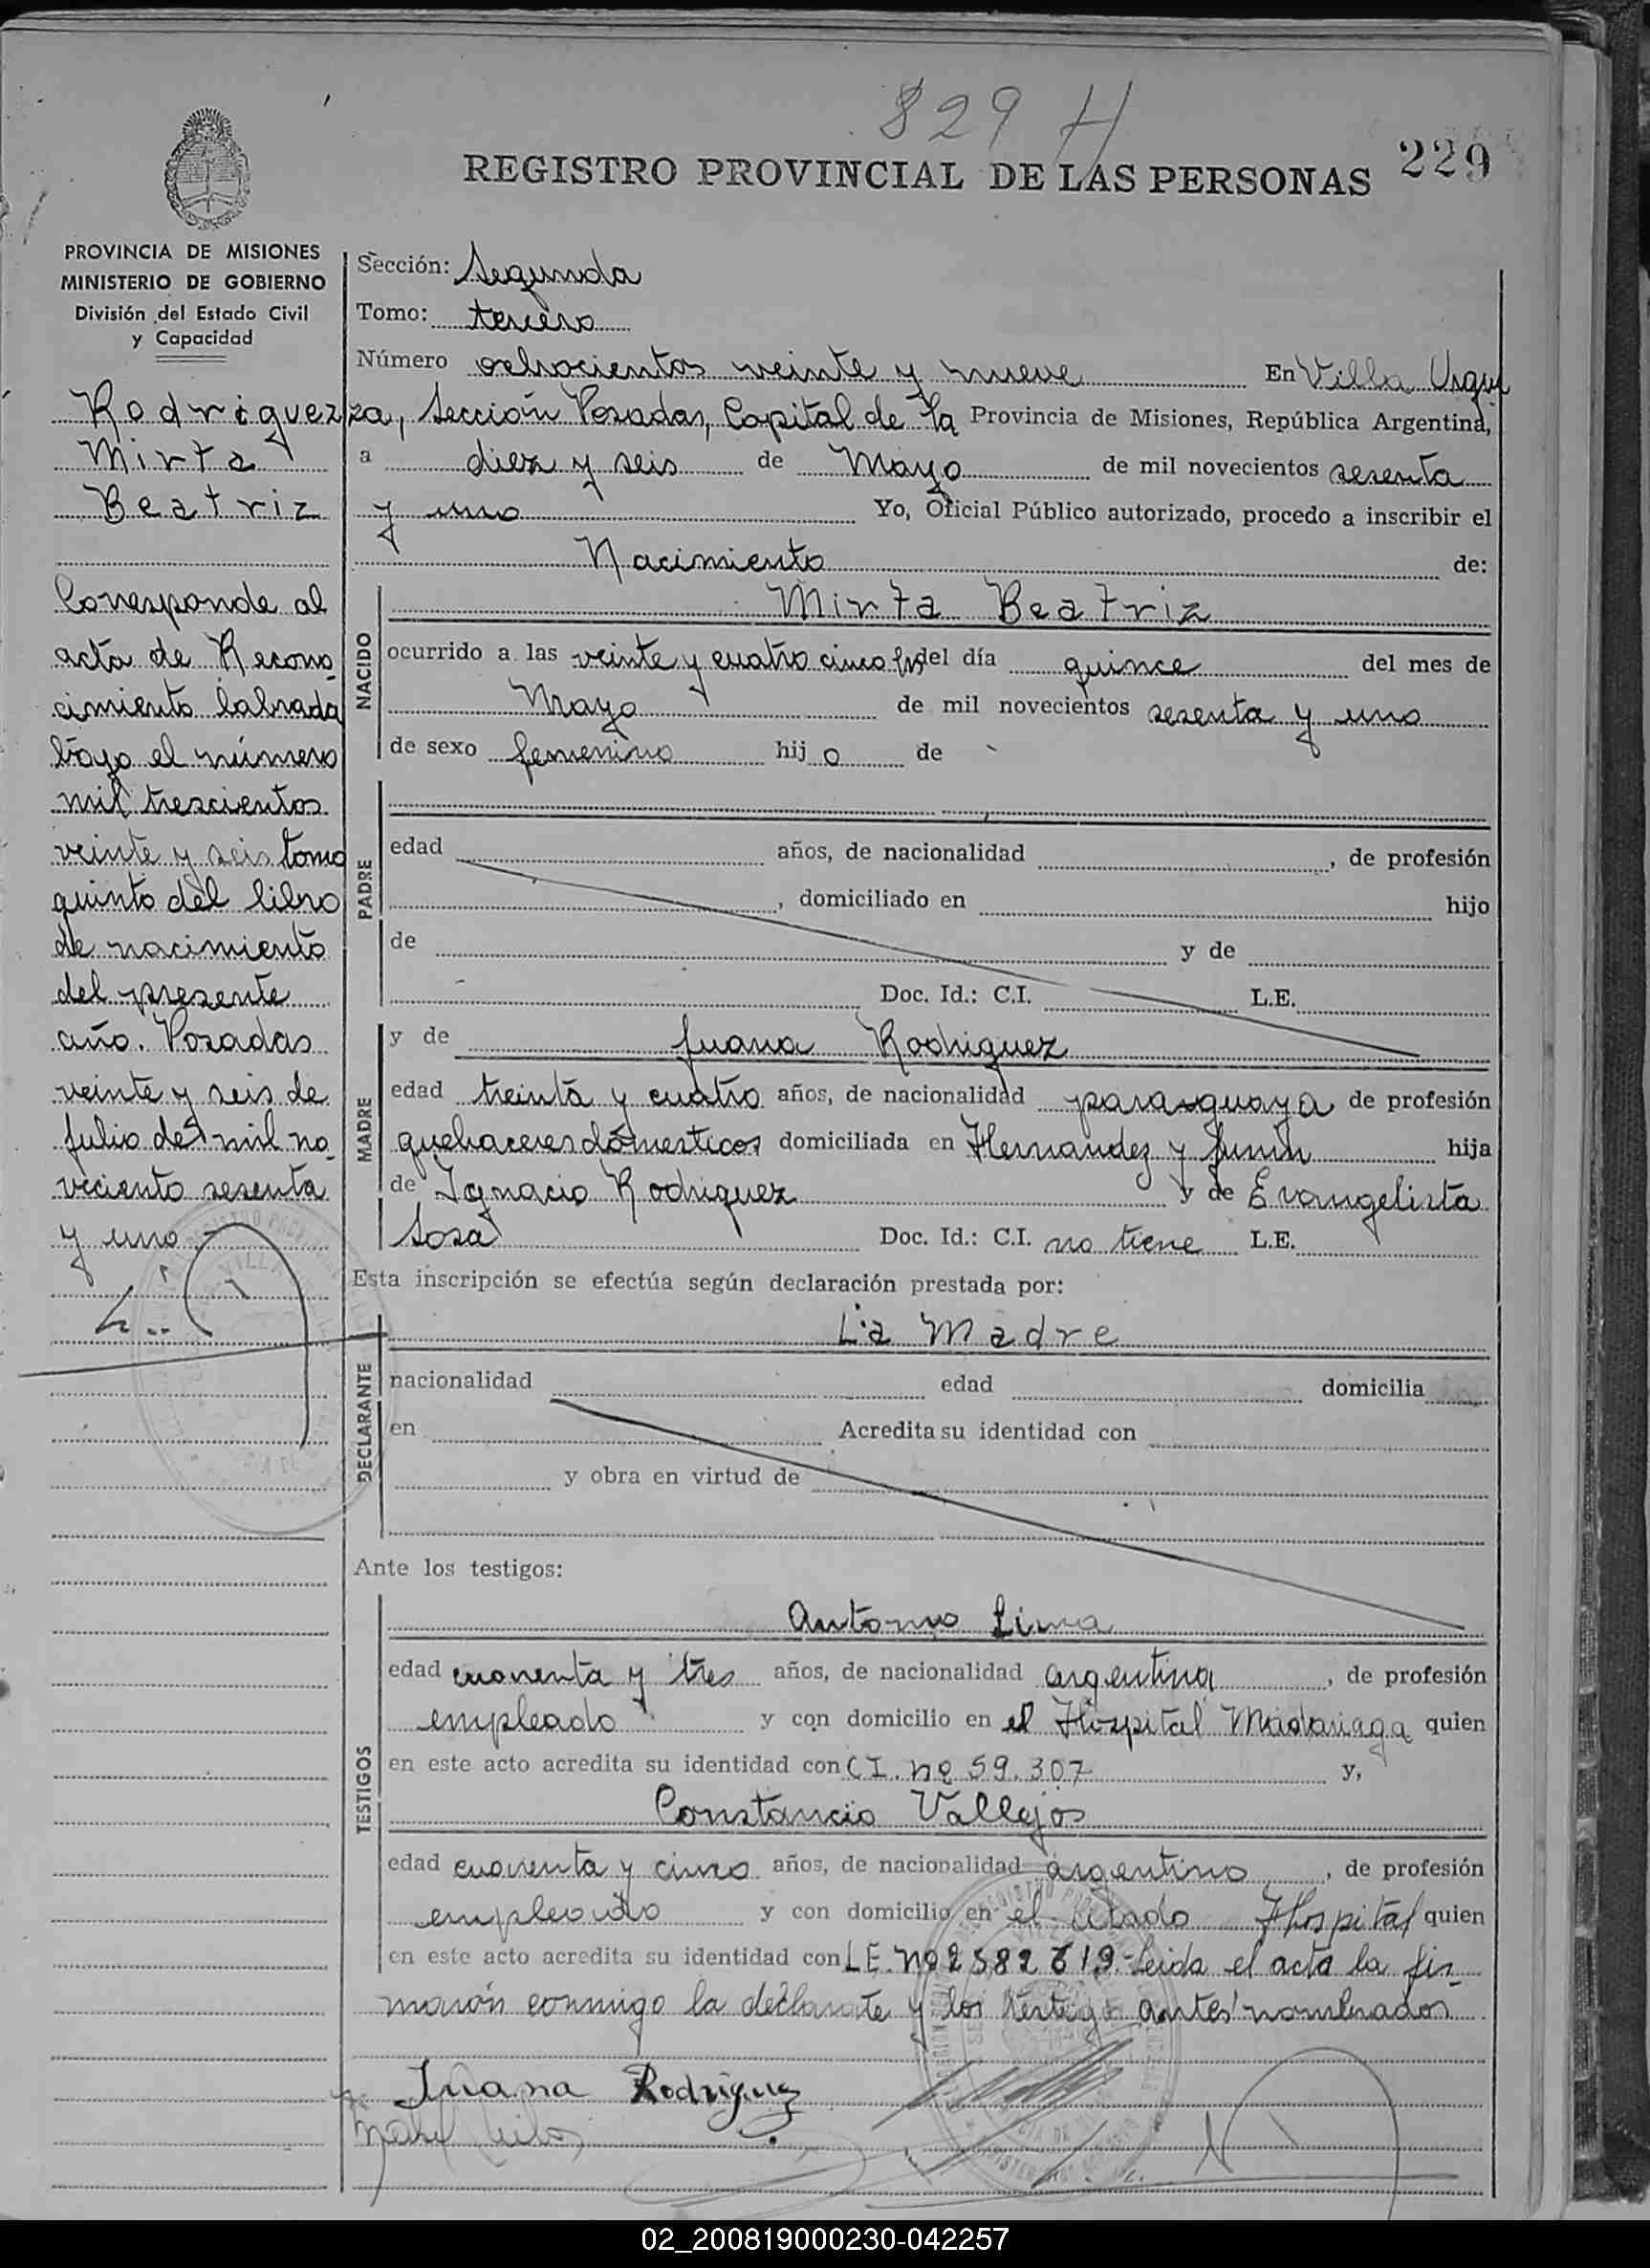 829 H
229
REGISTRO PROVINCIAL DE LAS PERSONAS
PROVINCIA DE MISIONES
MINISTERIO DE GOBIERNO
División del Estado Civil
y Capacidad
Rodriguez
Mirta
Beatriz
Corresponde al
acta de Recono
cimiento labrada
bajo el número
mil trescientos
veinte y seis tomo
quinto del libro
de nacimiento
del presente
año. Posadas
veinte y seis de
julio de mil no
veciento sesenta
y uno.-
Sección: Segunda
Tomo: tercero
Número ochocientos veinte y nueve En Villa Urqui
za, Sección Posadas, Capital de la Provincia de Misiones, República Argentina,
a diez y seis de Mayo de mil novecientos sesenta
y uno Yo, Oficial Público autorizado, procedo a inscribir el
Nacimiento de:
NACIDO
Mirta Beatriz
ocurrido a las veinte y cuatro cinco hs del día quince del mes de
Mayo de mil novecientos sesenta y uno
de sexo femenino hij o de
PADRE
edad años, de nacionalidad , de profesión
, domiciliado en hijo
de y de
Doc. Id.: C.I. L.E.
MADRE
y de Juana Rodriguez
edad treinta y cuatro años, de nacionalidad paraguaya de profesión
quehaceres domesticos domiciliada en Hernandez y Junin hija
de Ignacio Rodriguez y de Evangelista
Sosa Doc. Id.: C.I. no tiene L.E.
Esta inscripción se efectúa según declaración prestada por:
DECLARANTE
La Madre
nacionalidad edad domicilia
en Acredita su identidad con
y obra en virtud de
Ante los testigos:
TESTIGOS
Antonio Lima
edad cuarenta y tres años, de nacionalidad argentina , de profesión
empleado y con domicilio en el Hospital Madariaga quien
en este acto acredita su identidad con C I. nº 59.307 y,
Constancio Vallejos
edad cuarenta y cinco años, de nacionalidad argentino , de profesión
empleado y con domicilio en el citado Hospital quien
en este acto acredita su identidad con L E. nº 2582619.- Leida el acta la fir
maron conmigo la declarante y los testigos antes nombrados
Juana Rodriguez
02_200819000230-042257